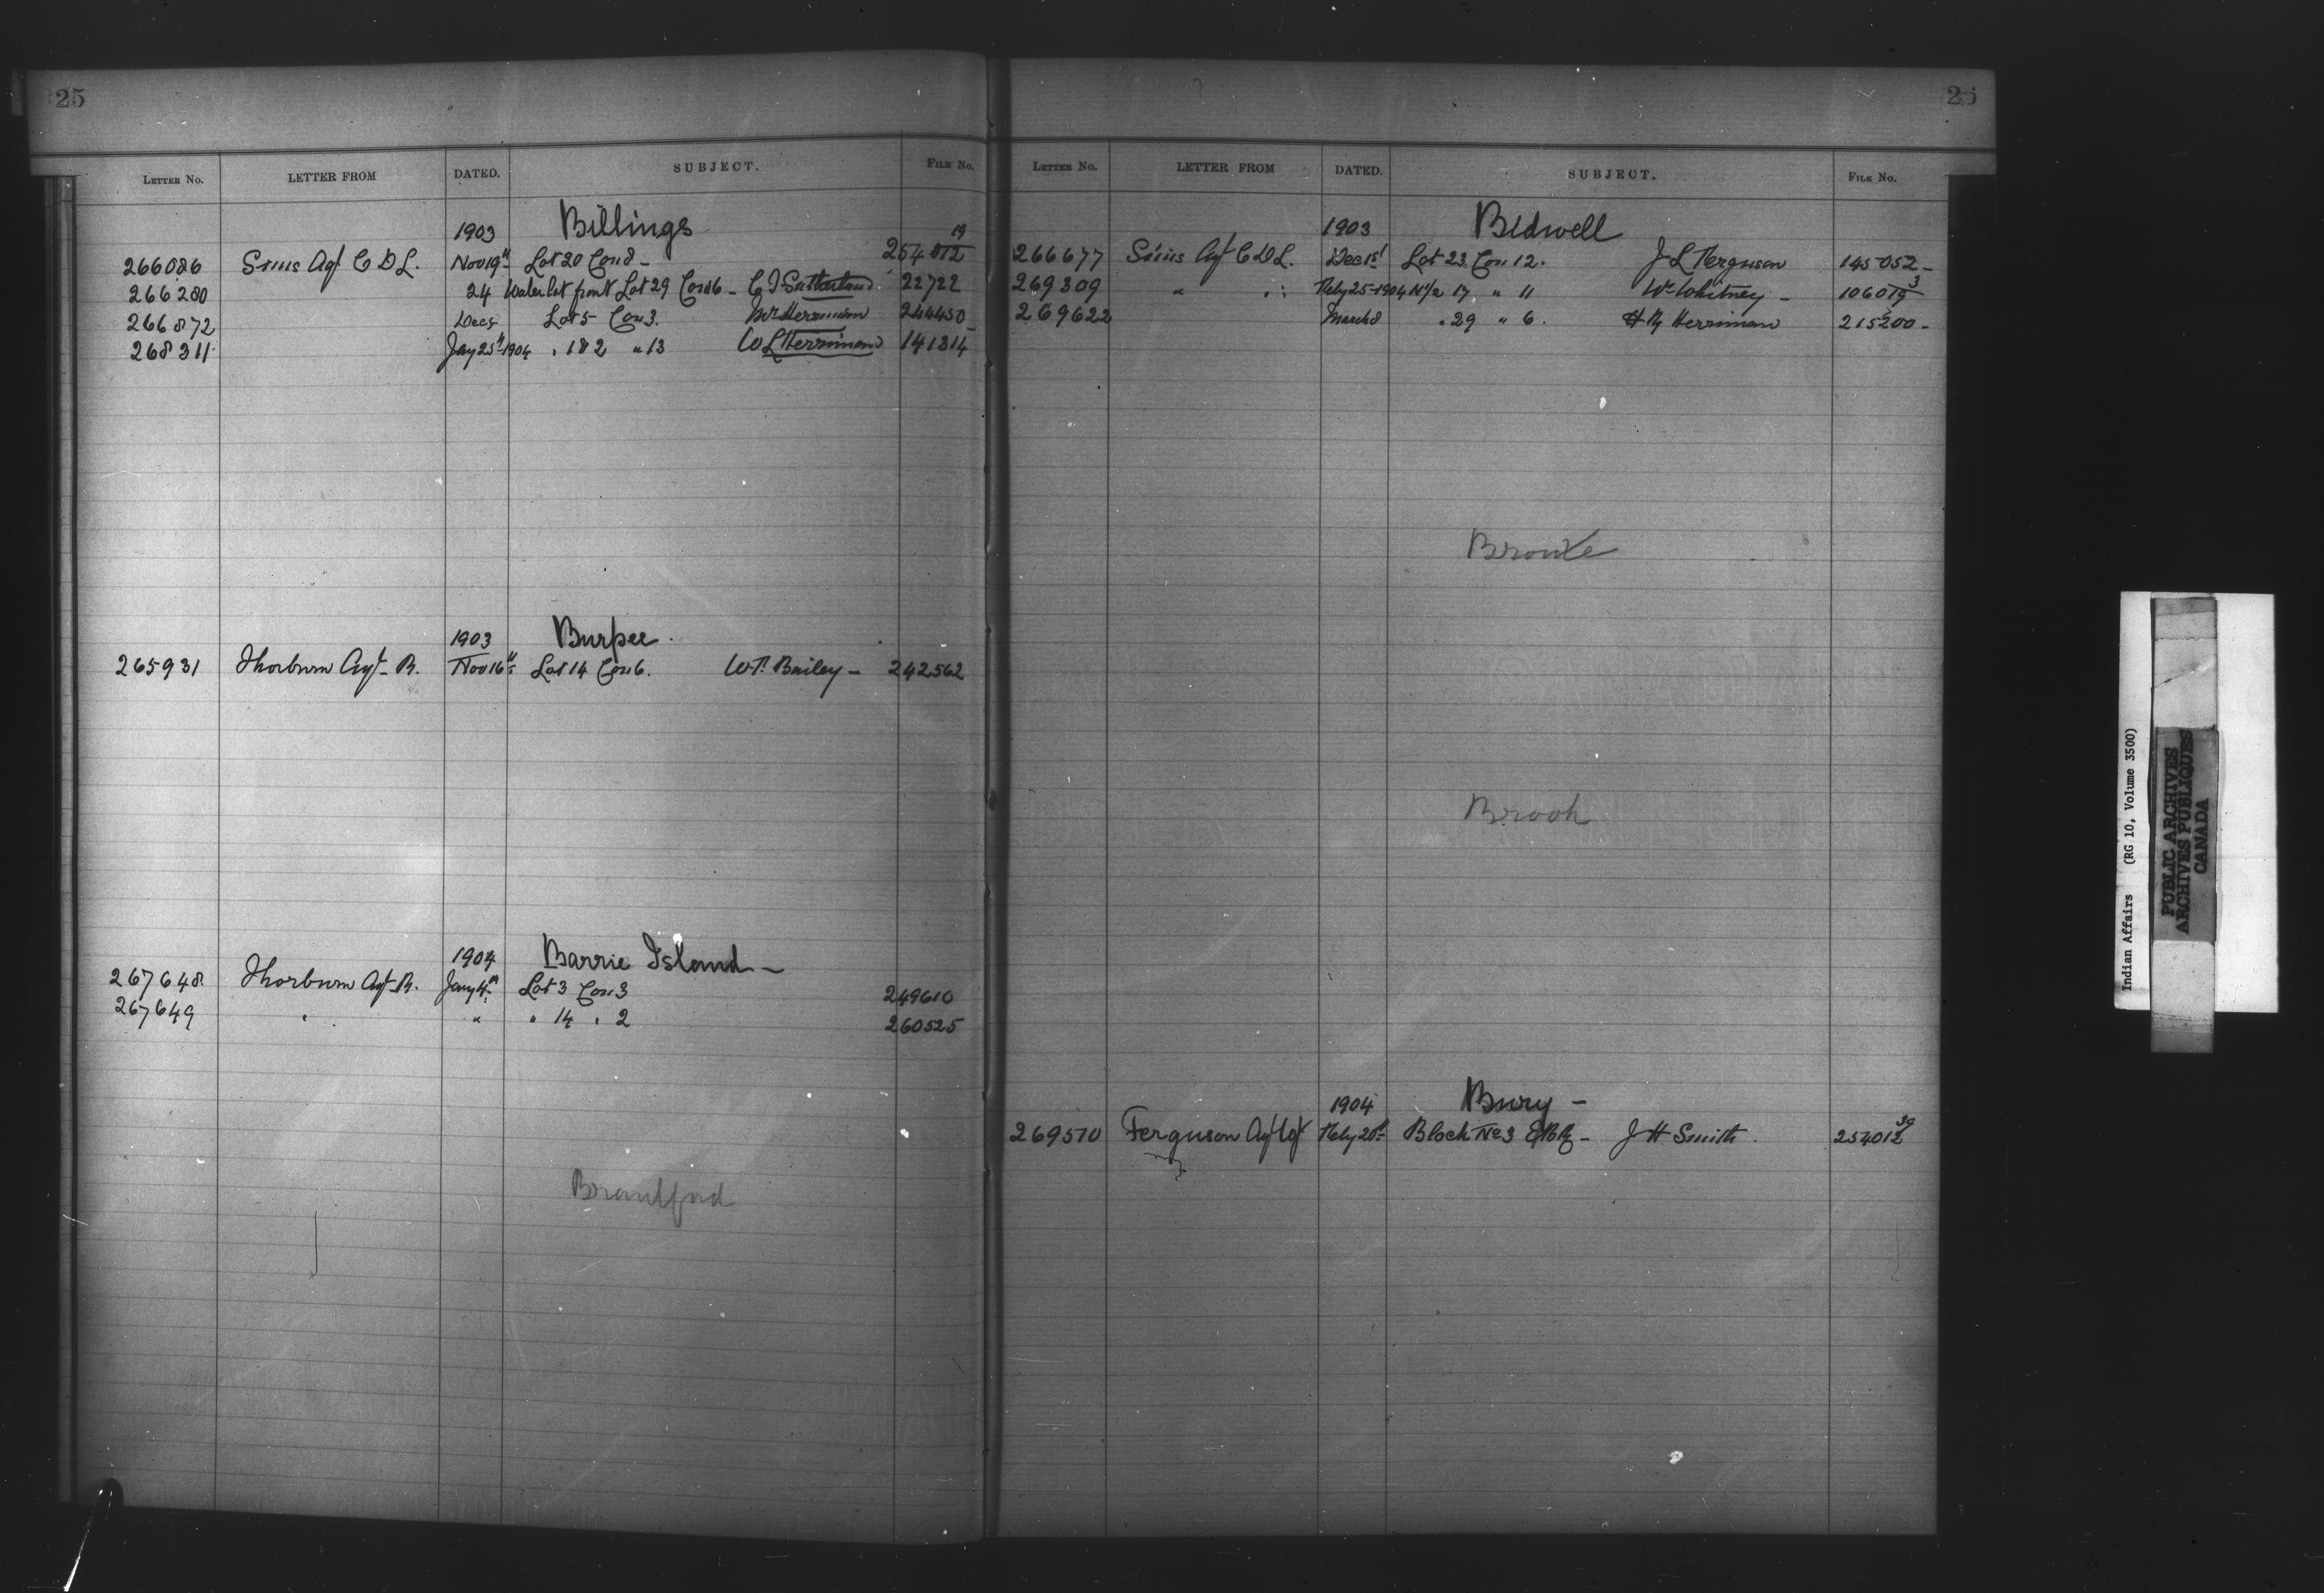 25
LETTER No. LETTER FROM DATED. SUBJECT. FILE No.
1903 Billings
266086 Sims Agt C D L. Nov 19th Lot 20 Con 8 - 254012 19
266280 24 Water lot front Lot 29 Con 16 - C J Sutherland 22722
266872 Dec 5 Lot 5 Con 3. Herriman 244450
268311 Jay 25th 1904 " 1 & 2 " 13 W L Herriman 141314
1903 Burpee
265931 Thorburn Agt - R. Nov 16th Lot 14 Con 6. W. Bailey - 242562
1904 Barrie Island -
267648 Thorburn Agt - R. Jany 4th Lot 3 Con 3 249610
267649 " " " 14 " 2 260525
Brantford
25
LETTER No. LETTER FROM DATED. SUBJECT. FILE No.
1903 Bidwell
266677 Sims Agt C D L. Dec 1st Lot 23 Con 12. J L Ferguson 145052 -
269309 " " Feby 25 - 1904 N 1/2 17 " 11 Wm Whitney - 106019 3
269622 March 8 " 29 " 6. Herriman 215200 -
Bronte
Brook
1904 Bury -
269510 Ferguson Agt Feby 20th Block No 3 - J H Smith 254012 39
Indian Affairs (RG 10, Volume 3500)
PUBLIC ARCHIVES
ARCHIVES PUBLIQUES
CANADA